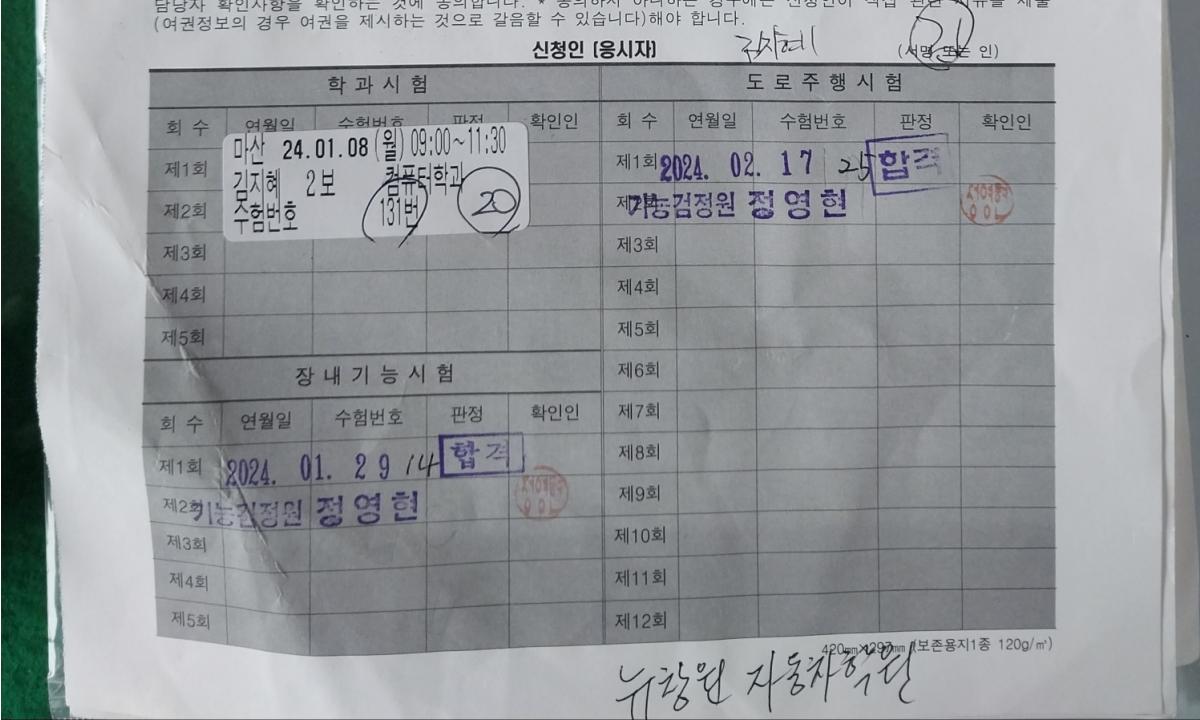 담당자 확인사항을 확인하는 것에 동의합니다. * 동의하지 아니하는 경우에는 신청인이 직접 관련 서류를 제출
(여권정보의 경우 여권을 제시하는 것으로 갈음할 수 있습니다)해야 합니다.
신청인 (응시자) 김지혜 (서명 또는 인)
학과시험
회 수 연월일 수험번호 판정 확인인
마산 24.01.08(월) 09:00~11:30
제1회
김지혜 2보 컴퓨터학과
제2회 수험번호 131번 20
제3회
제4회
제5회
장내기능시험
회 수 연월일 수험번호 판정 확인인
제1회 2024. 01. 29 14 합격
제2회 기능검정원 정영현
제3회
제4회
제5회
도로주행시험
회 수 연월일 수험번호 판정 확인인
제1회 2024. 02. 17 25 합격
제2회 기능검정원 정영현
제3회
제4회
제5회
제6회
제7회
제8회
제9회
제10회
제11회
제12회
420㎜×297㎜ (보존용지1종 120g/㎡)
뉴창원 자동차학원